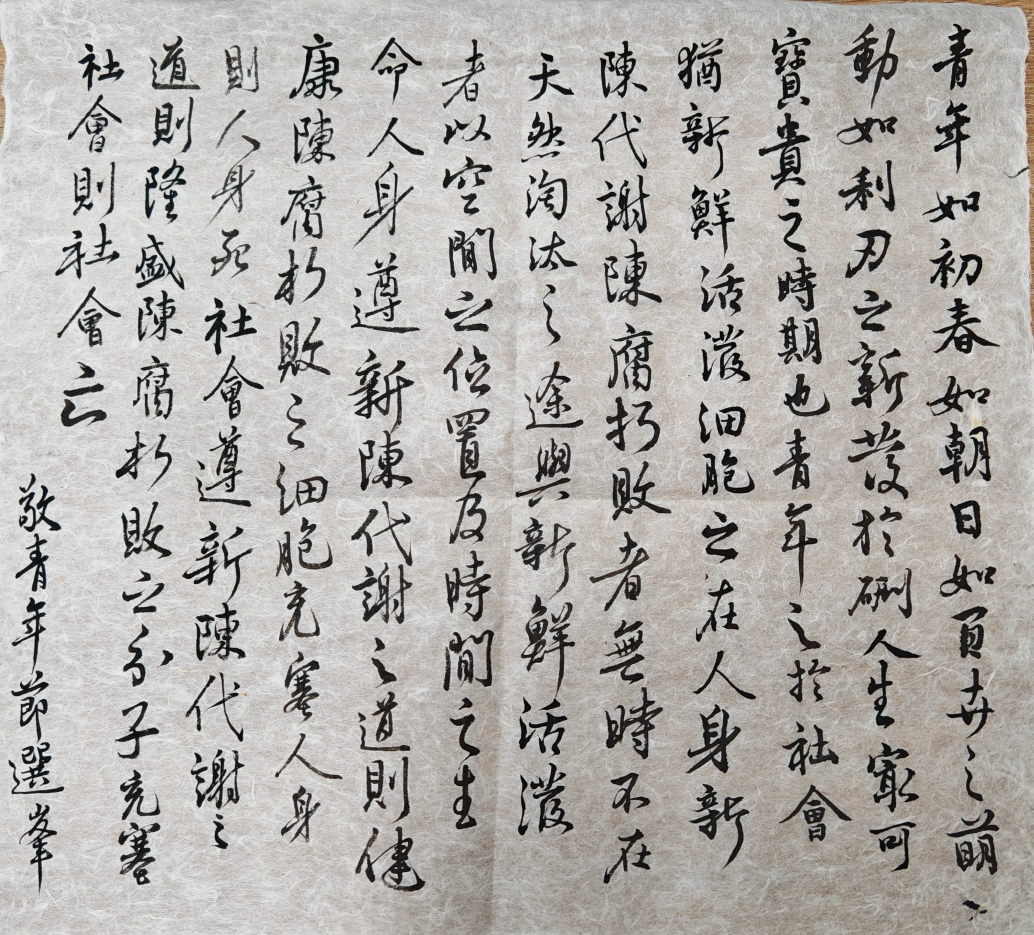 青年如初春如朝日如百卉之萌
動如利刃之新發於硎人生寂可
寶貴之時期也青年之於社會
猶新鮮活潑細胞之在人身新
陳代謝陳腐朽敗者無時不在
天然淘汰之途與新鮮活潑
者以空間之位置及時間之生
命人身遵新陳代謝之道則健
康陳腐朽敗之細胞充塞人身
則人身死社會遵新陳代謝之
道則隆盛陳腐朽敗之分子充塞
社會則社會亡
敬青年節選峯